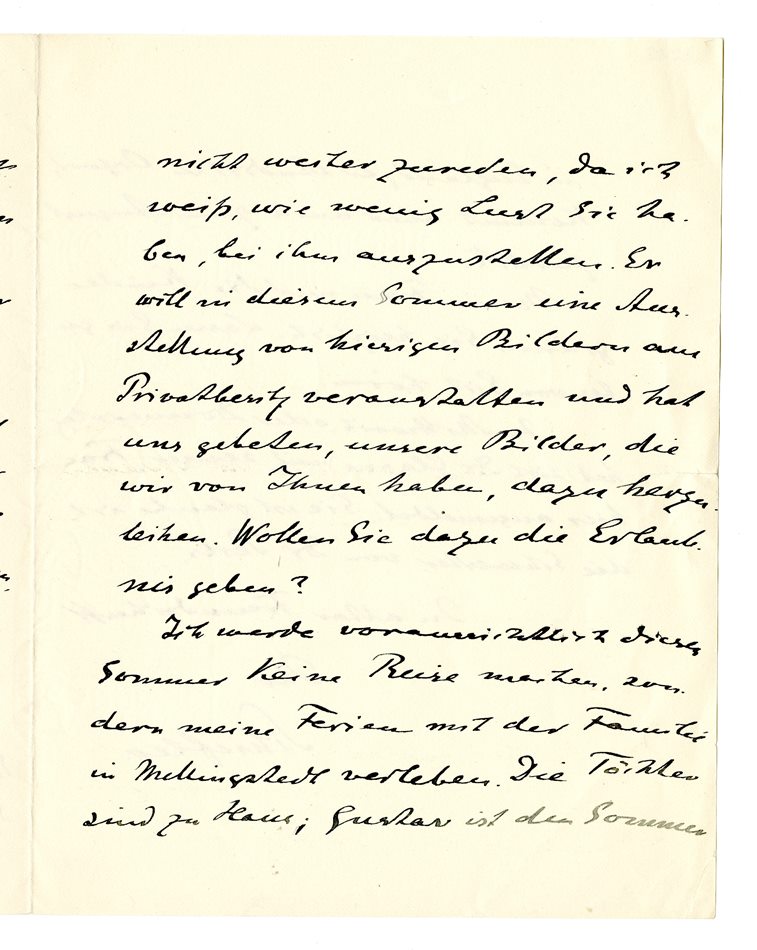 nicht weiter zureden, da ich
weiß, wie wenig Lust Sie ha-
ben, bei ihm auszustellen. Er
will in diesem Sommer eine Aus-
stellung von hiesigen Bildern aus
Privatbesitz veranstalten und hat
uns gebeten, unsere Bilder, die
wir von Ihnen haben, dazu herzu-
leihen. Wollen Sie dazu die Erlaub-
nis geben?
Ich werde voraussichtlich diesen
Sommer keine Reise machen, son-
dern meine Ferien mit der Familie
in Mellingstedt verleben. Die Töchter
sind zu Haus; Gustav ist den Sommer